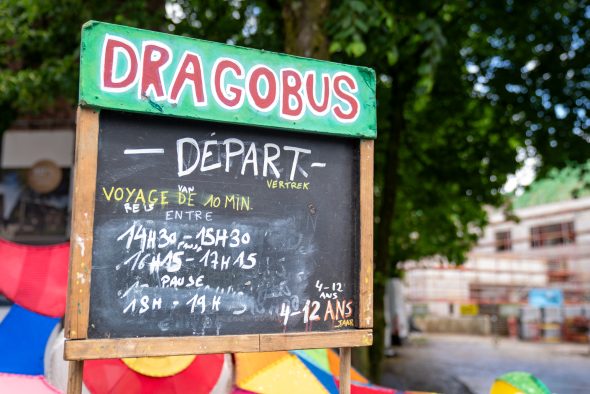 DRAGOBUS
— DÉPART —
VERTREK
VOYAGE DE 10 MIN.
REIS VAN
ENTRE
14H30 - 15H30
PAUSE
16H15 - 17H15
PAUSE
18H - 19H
4-12
ANS
4-12 ANS
JAAR